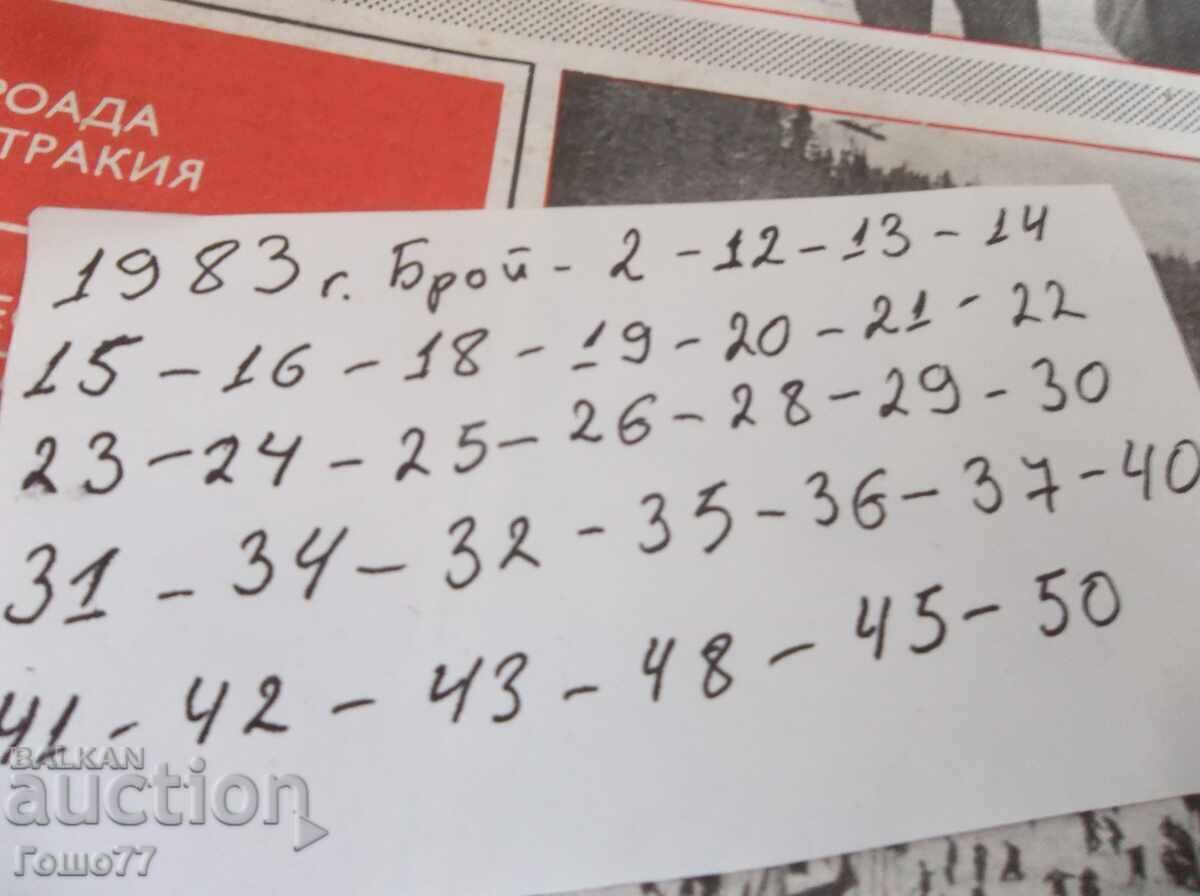 ТРАКИЯ
1983 г. Брой - 2 - 12 - 13 - 14
15 - 16 - 18 - 19 - 20 - 21 - 22
23 - 24 - 25 - 26 - 28 - 29 - 30
31 - 34 - 32 - 35 - 36 - 37 - 40
41 - 42 - 43 - 48 - 45 - 50
BALKAN
auction
Гошо77